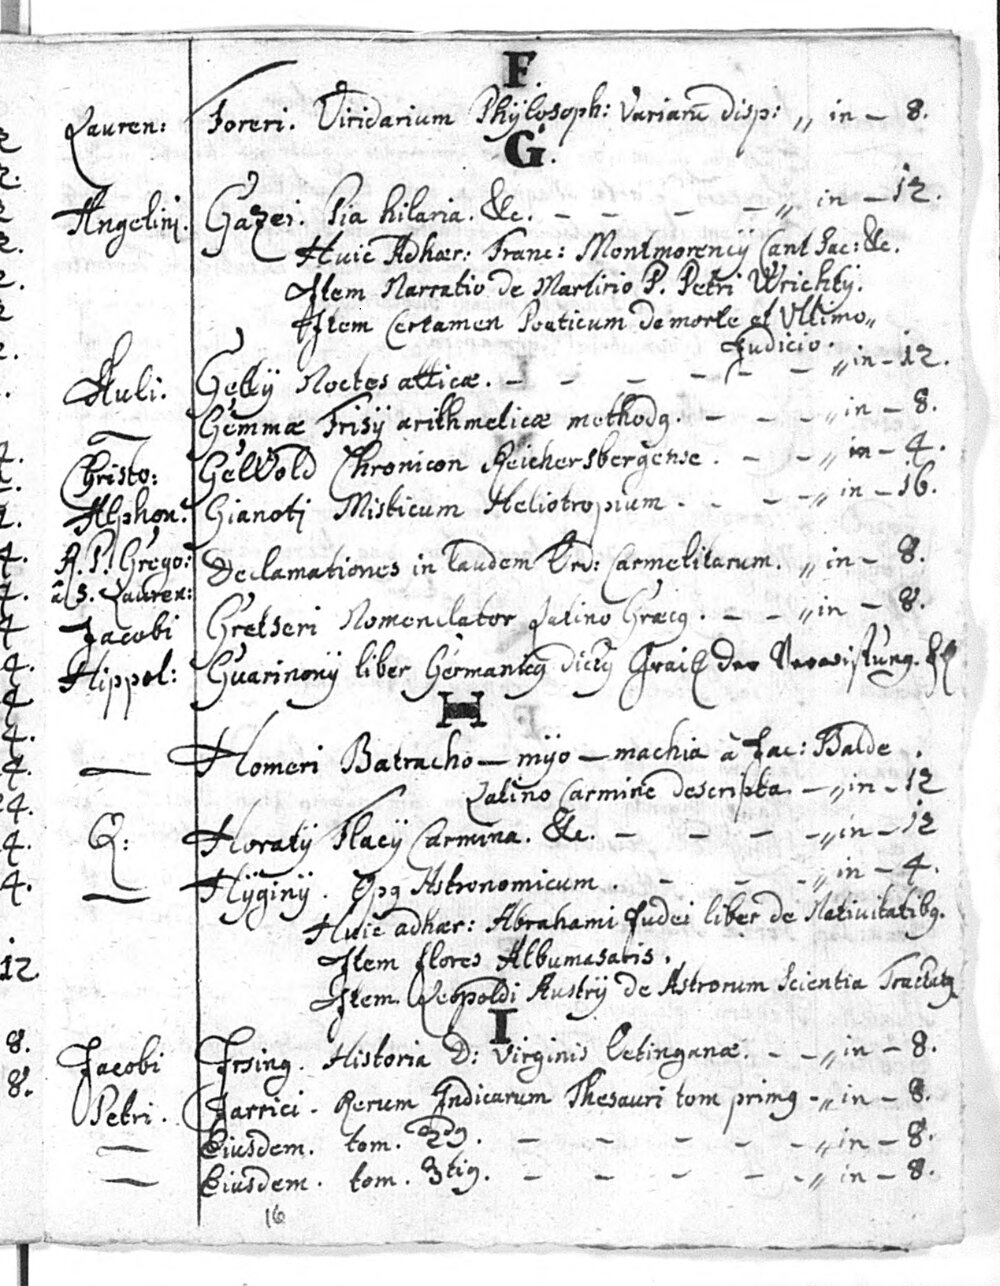 F.
Lauren: Foreri. Viridarium Phÿlosoph: Variarũ disp: „ in – 8.
G.
Angelinj. Gazei. Pia hilaria. &c. – – – – „ in – 12.
Huic Adhær: Franc: Montmorency Cant Sac: &c.
Item Narratio de Martirio P. Petri Wrichtÿ.
Item Certamen Poeticum de morte et Ultimo„
Judicio. „ in – 12.
Auli. Gellÿ Noctes atticæ. – – – – – –
— Gemmæ Frisÿ arithmeticæ methodq. – – – „ in – 8.
Christo: Gewold Chronicon Reichersbergense. – – „ in – 4.
Alphon: Gianotj Misticum Heliotropium. – – – „ in – 16.
R. P. Grego: Declamationes in laudem Ord: Carmelitarum. „ in – 8.
â S. Lauren:
Jacobi Gretseri Nomenclator Latino Græcq. – – „ in – 8.
Hippol: Guarinonÿ liber Germanicq dictq
H
— Homeri Batracho – mÿo – machia â Jac: Balde.
Latino Carmine descripta. – „ in – 12
Q: Horatÿ Flacÿ Carmina. &c. – – – „ in – 12
— Hÿginÿ. Opq Astronomicum. – – „ in – 4.
Huic adhær: Abrahami Judei liber de Nativitatibq.
Item flores Albumasaris.
Item. Leopoldi Austrÿ de Astrorum Scientia Tractatq
I
Jacobi Irsing. Historia D: Virginis Oetinganæ. – – „ in – 8.
Petri. Jarrici. Rerum Indicarum Thesauri tom primq – „ in – 8.
— Eiusdem. tom. 2dq. – – – – „ in – 8.
— Eiusdem. tom. 3tiq. – – – – – „ in – 8.
16